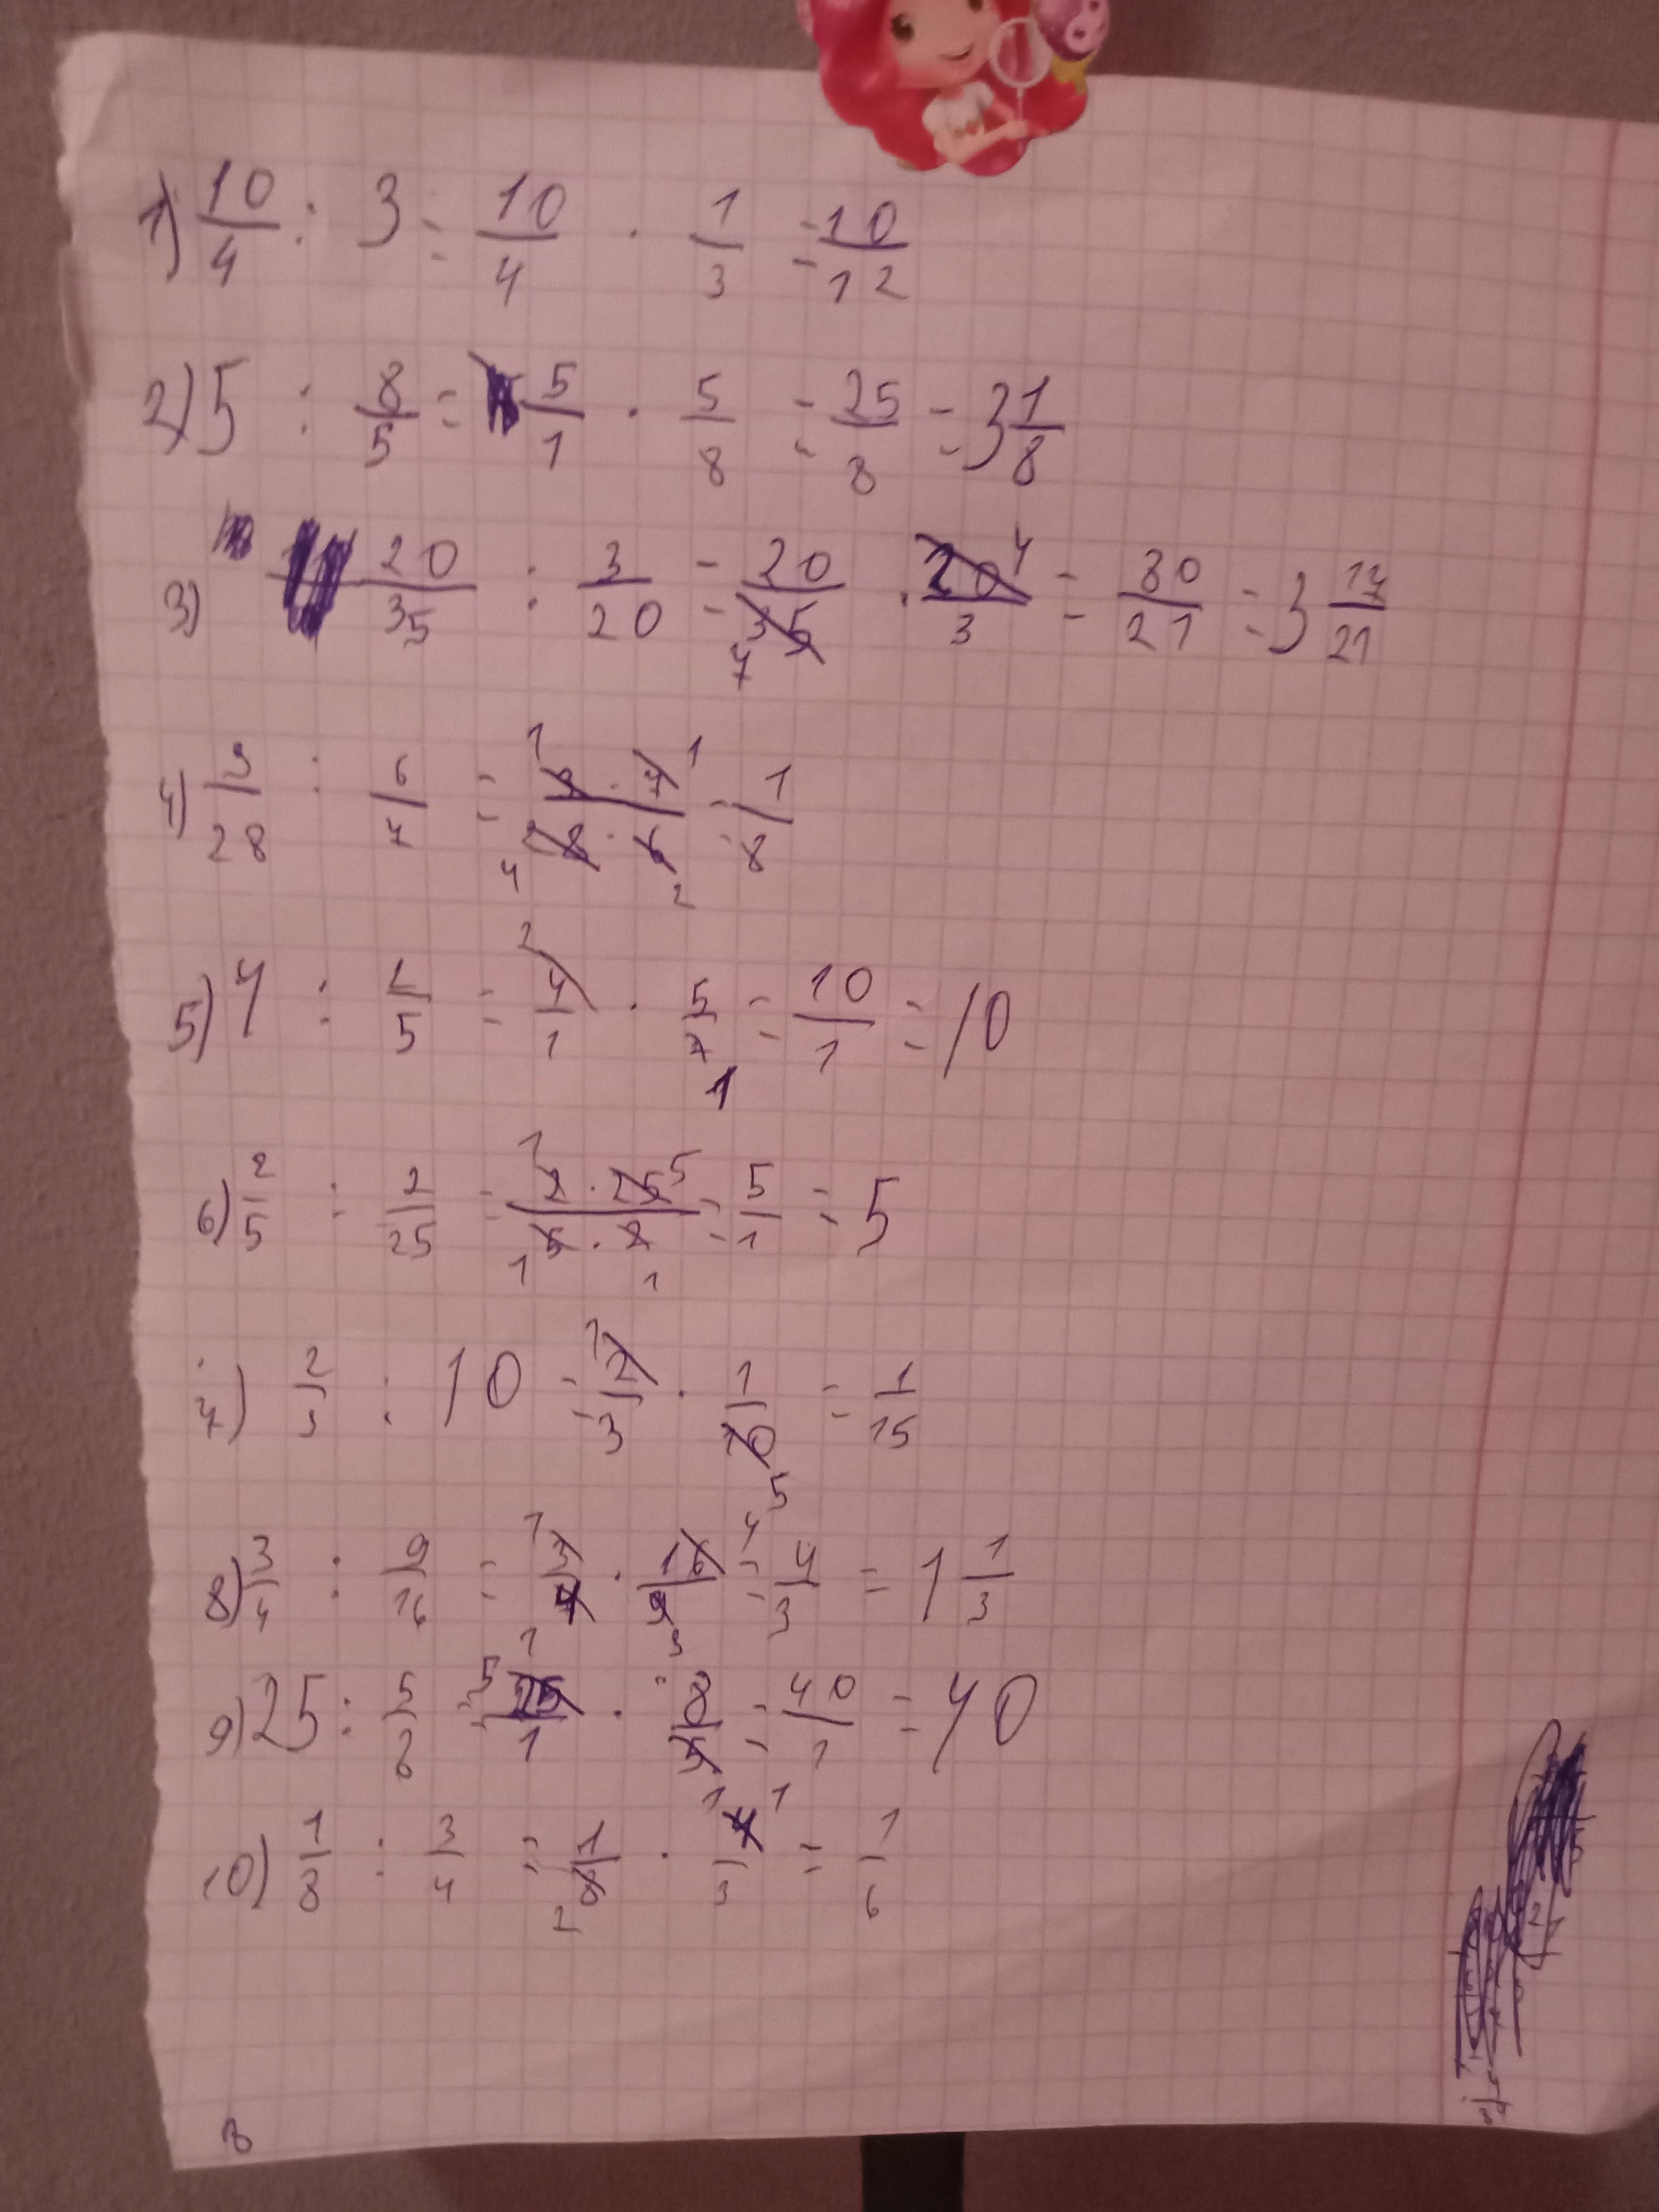 1) 10/4 : 3 = 10/4 · 1/3 = 10/12
2) 5 : 8/5 = 5/1 · 5/8 = 25/8 = 3 1/8
3) 20/35 : 3/20 = 20/35 7 · 20 4/3 = 80/21 = 3 17/21
4) 3/28 : 6/7 = 1 3 · 7 1 / 4 28 · 6 2 = 1/8
5) 4 : 2/5 = 2 4/1 · 5/2 1 = 10/1 = 10
6) 2/5 : 2/25 = 1 2 · 25 5 / 1 5 · 2 1 = 5/1 = 5
7) 2/3 : 10 = 1 2/3 · 1/10 5 = 1/15
8) 3/4 : 9/16 = 1 3/4 1 · 16 4/9 3 = 4/3 = 1 1/3
9) 25 : 5/8 = 5 25/1 · 8/5 1 = 40/1 = 40
10) 1/8 : 3/4 = 1/8 2 · 4 1/3 = 1/6
8